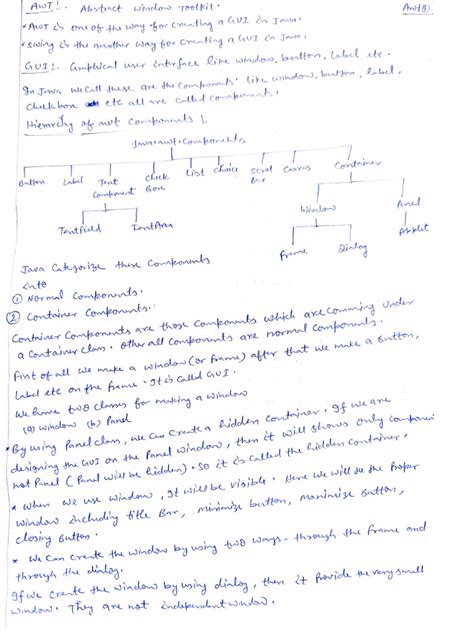 AWT!. Abstract Window Toolkit. Awt①
* AWT is one of the way for creating a GUI in Java.
* swing is the another way for creating a GUI in Java.
GUI!. Graphical user interface like window, button, Label etc.
In Java we call these are the Components like window, button, label,
Checkbox etc all are called components.
Hierarchy of awt Components!.
Java.awt.Components
Button Label Text Component Check Box List Choice Scrol Bar Canvas Container
TextField TextArea Window Panel
Frame Dialog Applet
Java Categorize these Components
into
① Normal Components.
② Container Components.
Container Components are those Components which are comming under
a Container Class. Other all Components are normal Components.
First of all we make a window (or Frame) after that we make a Button,
Label etc on the frame. It is called GUI.
We have two classes for making a window
(a) Window (b) Panel
* By using Panel class, we can create a hidden container. If we are
designing the GUI on the Panel window, then it will shows only componen
not Panel (Panel will be hidden). So it is called the hidden container.
* When we use window, it will be visible. Here we will see the Proper
window including title Bar, minimize button, Maximize Button,
closing Button.
* We can create the window by using two ways - through the frame and
through the dialog.
If we create the window by using dialog, then it Provide the very small
window. They are not independent window.